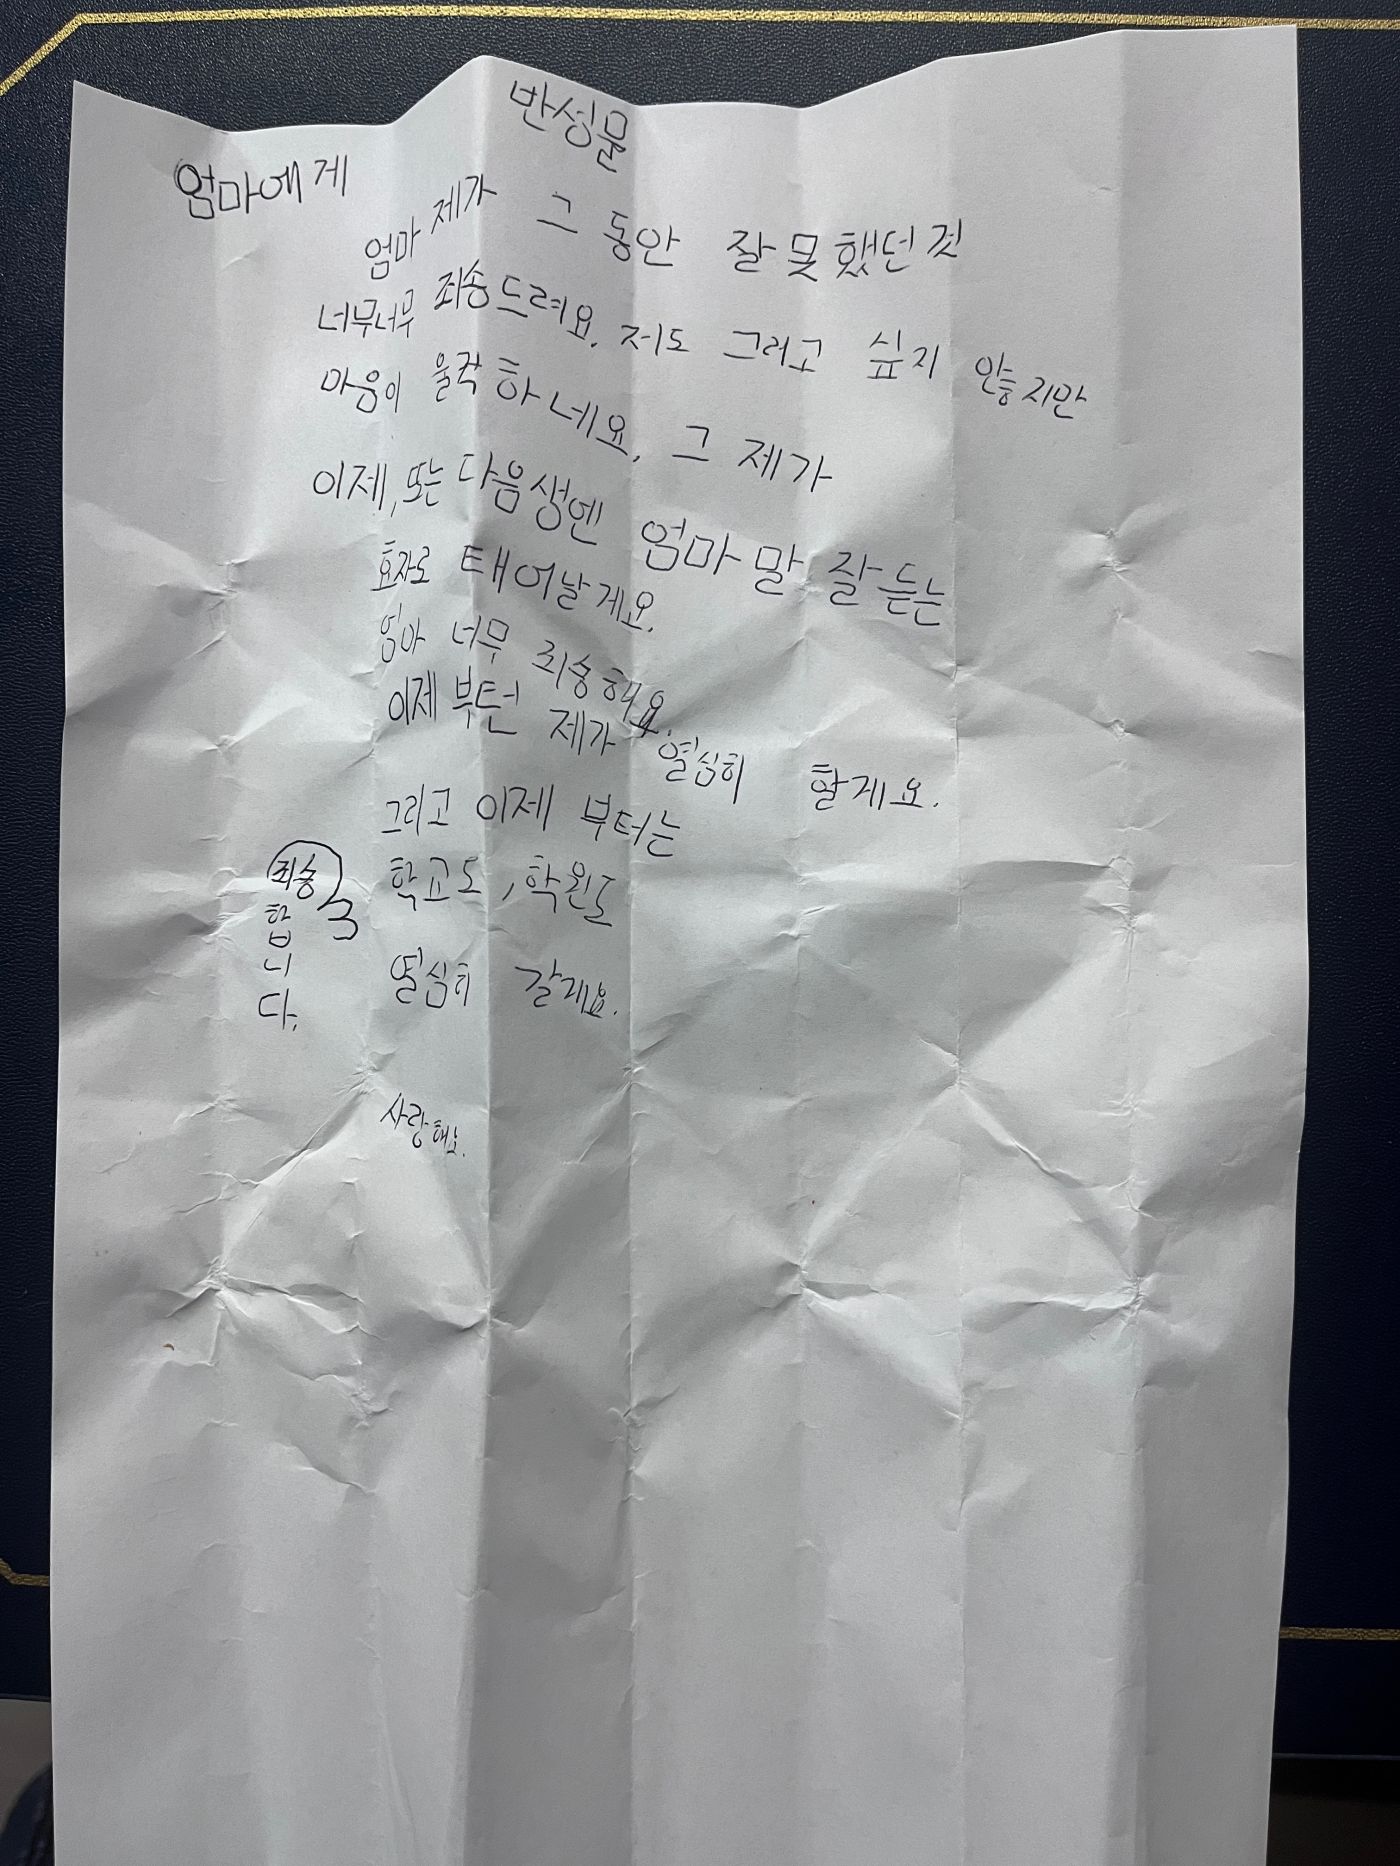 반성문
엄마에게
엄마 제가 그 동안 잘 못했던 것
너무너무 죄송드려요. 저도 그러고 싶지 안흥지만
마음이 울컥 하네요. 그 제가
이제, 또는 다음생엔 엄마말 잘 듣는
효자로 태어날게요.
엄마 너무 죄송해요.
이제 부턴 제가 열심히 할게요.
그리고 이제 부터는
학교도, 학원도
열심히 갈게요.
죄송
합
니
다.
사랑해요.